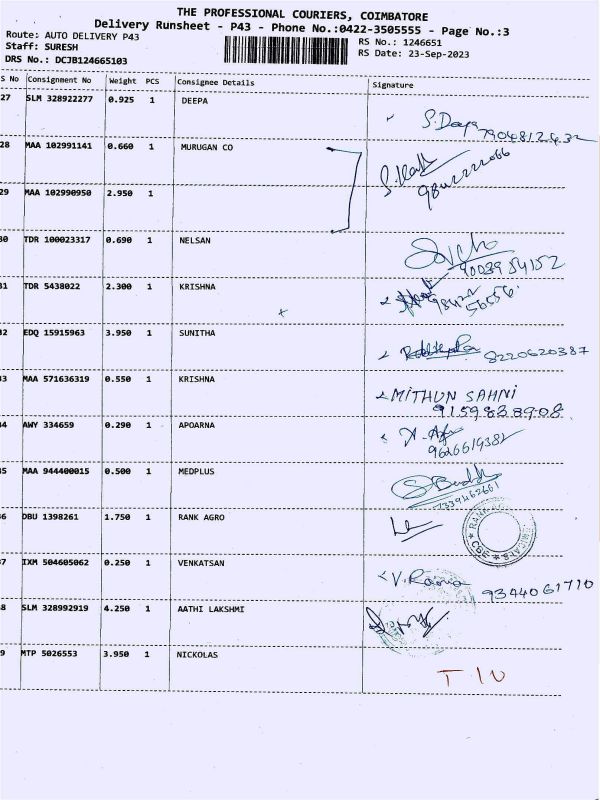 THE PROFESSIONAL COURIERS, COIMBATORE
Delivery Runsheet - P43 - Phone No.:0422-3505555 - Page No.:3
Route: AUTO DELIVERY P43
RS No.: 1246651
Staff: SURESH
RS Date: 23-Sep-2023
DRS No.: DCJB124665103
S No Consignment No Weight PCS Consignee Details Signature
27 SLM 328922277 0.925 1 DEEPA S. Deepa 7904812432
28 MAA 102991141 0.660 1 MURUGAN CO
29 MAA 102990950 2.950 1
30 TDR 100023317 0.690 1 NELSAN 9003954152
31 TDR 5438022 2.300 1 KRISHNA
32 EDQ 15915963 3.950 1 SUNITHA 8220620387
33 MAA 571636319 0.550 1 KRISHNA MITHUN SAHNI
9159833908
34 AWY 334659 0.290 1 APOARNA
9626619382
35 MAA 944400015 0.500 1 MEDPLUS
7339462661
36 DBU 1398261 1.750 1 RANK AGRO
37 IXM 504605062 0.250 1 VENKATSAN V. Rama 9344061710
38 SLM 328992919 4.250 1 AATHI LAKSHMI
39 MTP 5026553 3.950 1 NICKOLAS